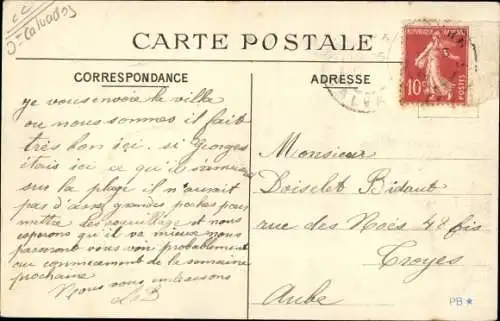 Dt Calvados
CARTE POSTALE
CORRESPONDANCE
ADRESSE
REPUBLIQUE FRANCAISE
10c
POSTES
CALVA
je vous envoie la ville
ou nous sommes il fait
très bon ici. si Georges
étais ici ce qu'il s'amuserais
sur la plage il n'aurait
pas d'assez grandes poches pour
mettre les coquillage et nous
esperons qu'il va mieux nous
passerons vous voir probablement
ou commencement de la semaine
prochaine
Nous vous embrassons
LB
Monsieur
Doiselet Bidaut
rue des Noës 48 bis
Troyes
Aube
PB